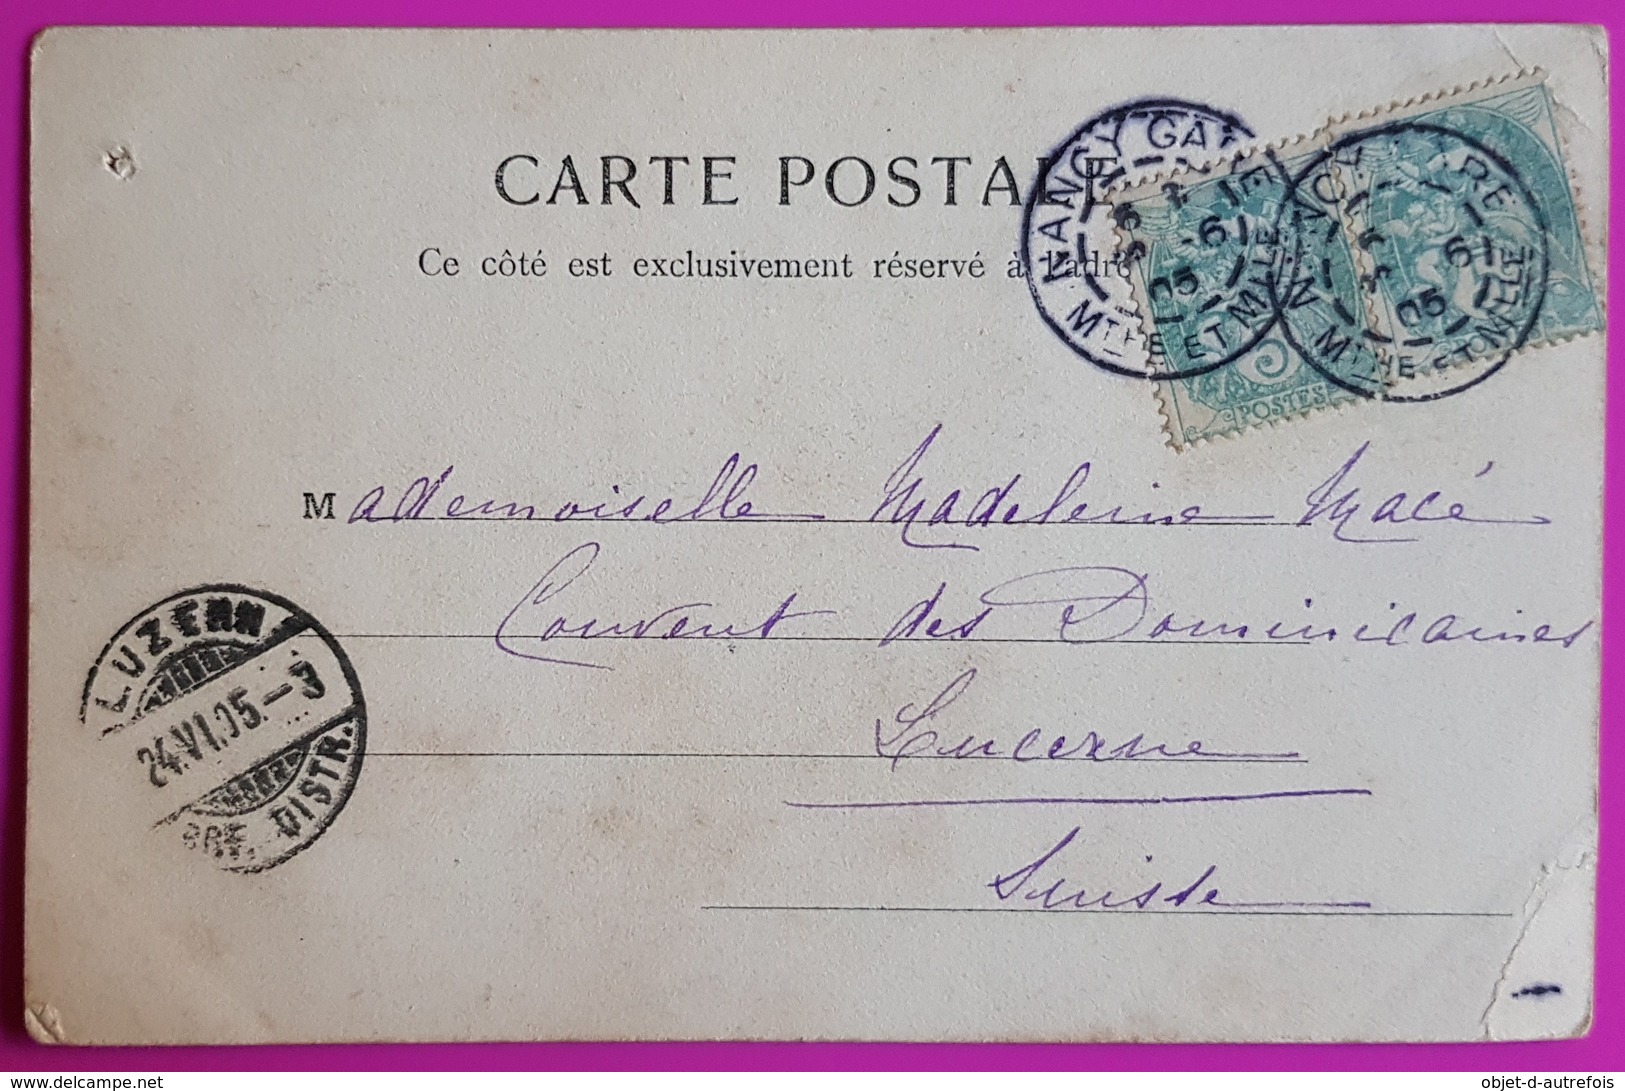 CARTE POSTALE
Ce côté est exclusivement réservé à l'adre
NANCY GARE
-6
05
MTHE ET MLLE
NANCY GARE
-6
05
MTHE ET MLLE
5
POSTES
Mademoiselle Madeleine Macé
Couvent des Dominicaines
Lucerne
Suisse
LUZERN
24.VI.05.-3
BRF. DISTR.
objet-d-autrefois